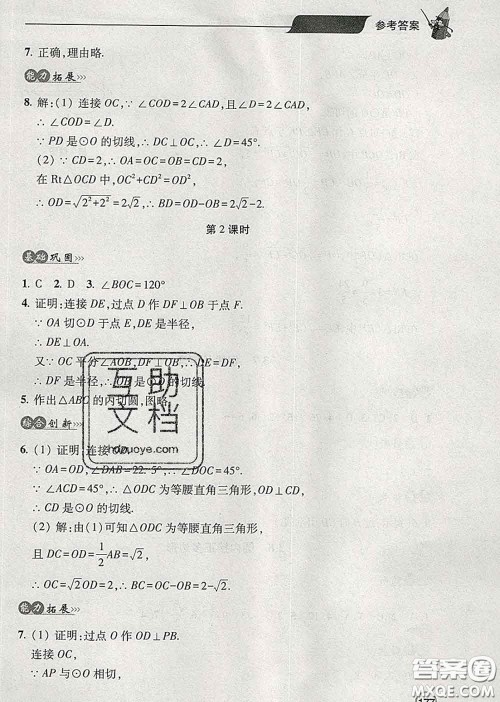 参考答案
7. 正确,理由略.
能力拓展>>>
8. 解:(1) 连接 OC,∵ ∠COD=2∠CAD,且∠D=2∠CAD,
∴ ∠COD=∠D.
∵ PD 是⊙O 的切线,∴ DC⊥OC,∴ ∠D=45°.
(2) ∵ CD=2,∴ OA=OC=OB=CD=2,
在 Rt△OCD 中,OC²+CD²=OD²,
∴ OD=√(2²+2²)=2√2,∴ BD=OD-OB=2√2-2.
第 2 课时
基础巩固>>>
1. C 2. D 3. ∠BOC=120°
4. 证明:连接 DE,过点 D 作 DF⊥OB 于点 F.
∵ OA 切⊙D 于点 E,DE 是半径,
∴ DE⊥OA.
又∵ OC 平分∠AOB,DF⊥OB,∴ DE=DF.
∴ DF 是半径,∴ OB 是⊙D 的切线.
5. 作出△ABC 的内切圆,图略.
综合创新>>>
6. (1) 证明:连接 OD.
∵ OA=OD,∠DAB=22.5°,
∵ ∠ACD=45°,∴ △ODC 为等腰直角三角形,∴ OD⊥CD,
∴ CD 是⊙O 的切线.
(2) 解:由(1)可知△ODC 为等腰直角三角形,
且 DC=OD=1/2AB=√2,
∴ OC=√2OD=2,∴ BC=OC-OB=2-√2.
能力拓展>>>
7. (1) 证明:过点 O 作 OD⊥PB.
连接 OC,
∵ AP 与⊙O 相切,
互助文档
hdzuoye.com
答案圈
MXQE.COM
177